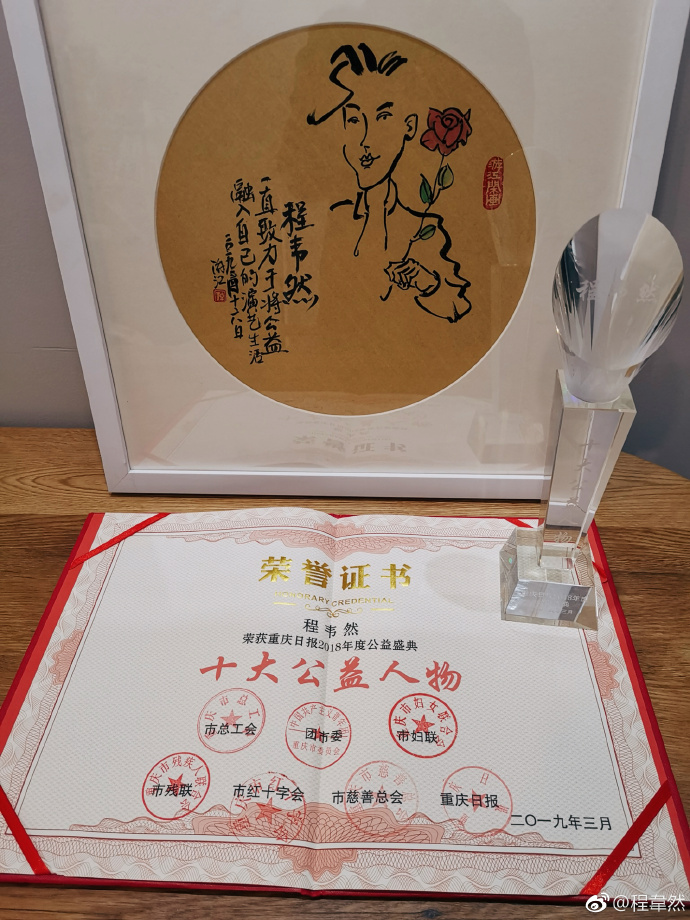 程韦然
一直致力于将公益
融入自己的演艺生活
程韦然
荣誉证书
HONORARY CREDENTIAL
程韦然
荣获重庆日报2018年度公益盛典
十大公益人物
市总工会
团市委
市妇联
市残联
市红十字会
市慈善总会
重庆日报
二〇一九年三月
@程韋然